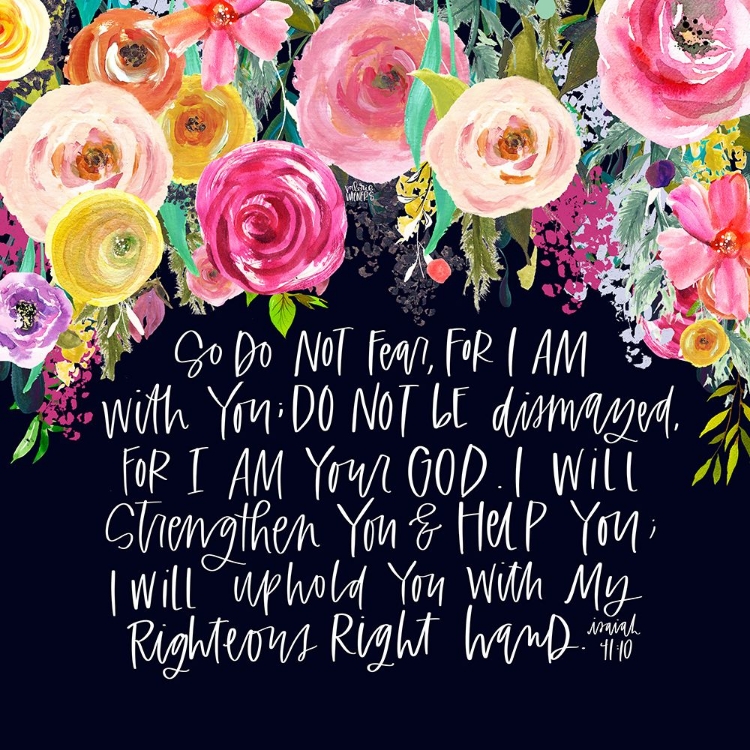 So Do NOT Fear, FOR I AM
with You; DO NOT bE dismayed,
FOR I AM Your GOD. I Will
Strengthen You & HElP You;
I Will uphold You With My
Righteous Right hand.
isaiah
41:10